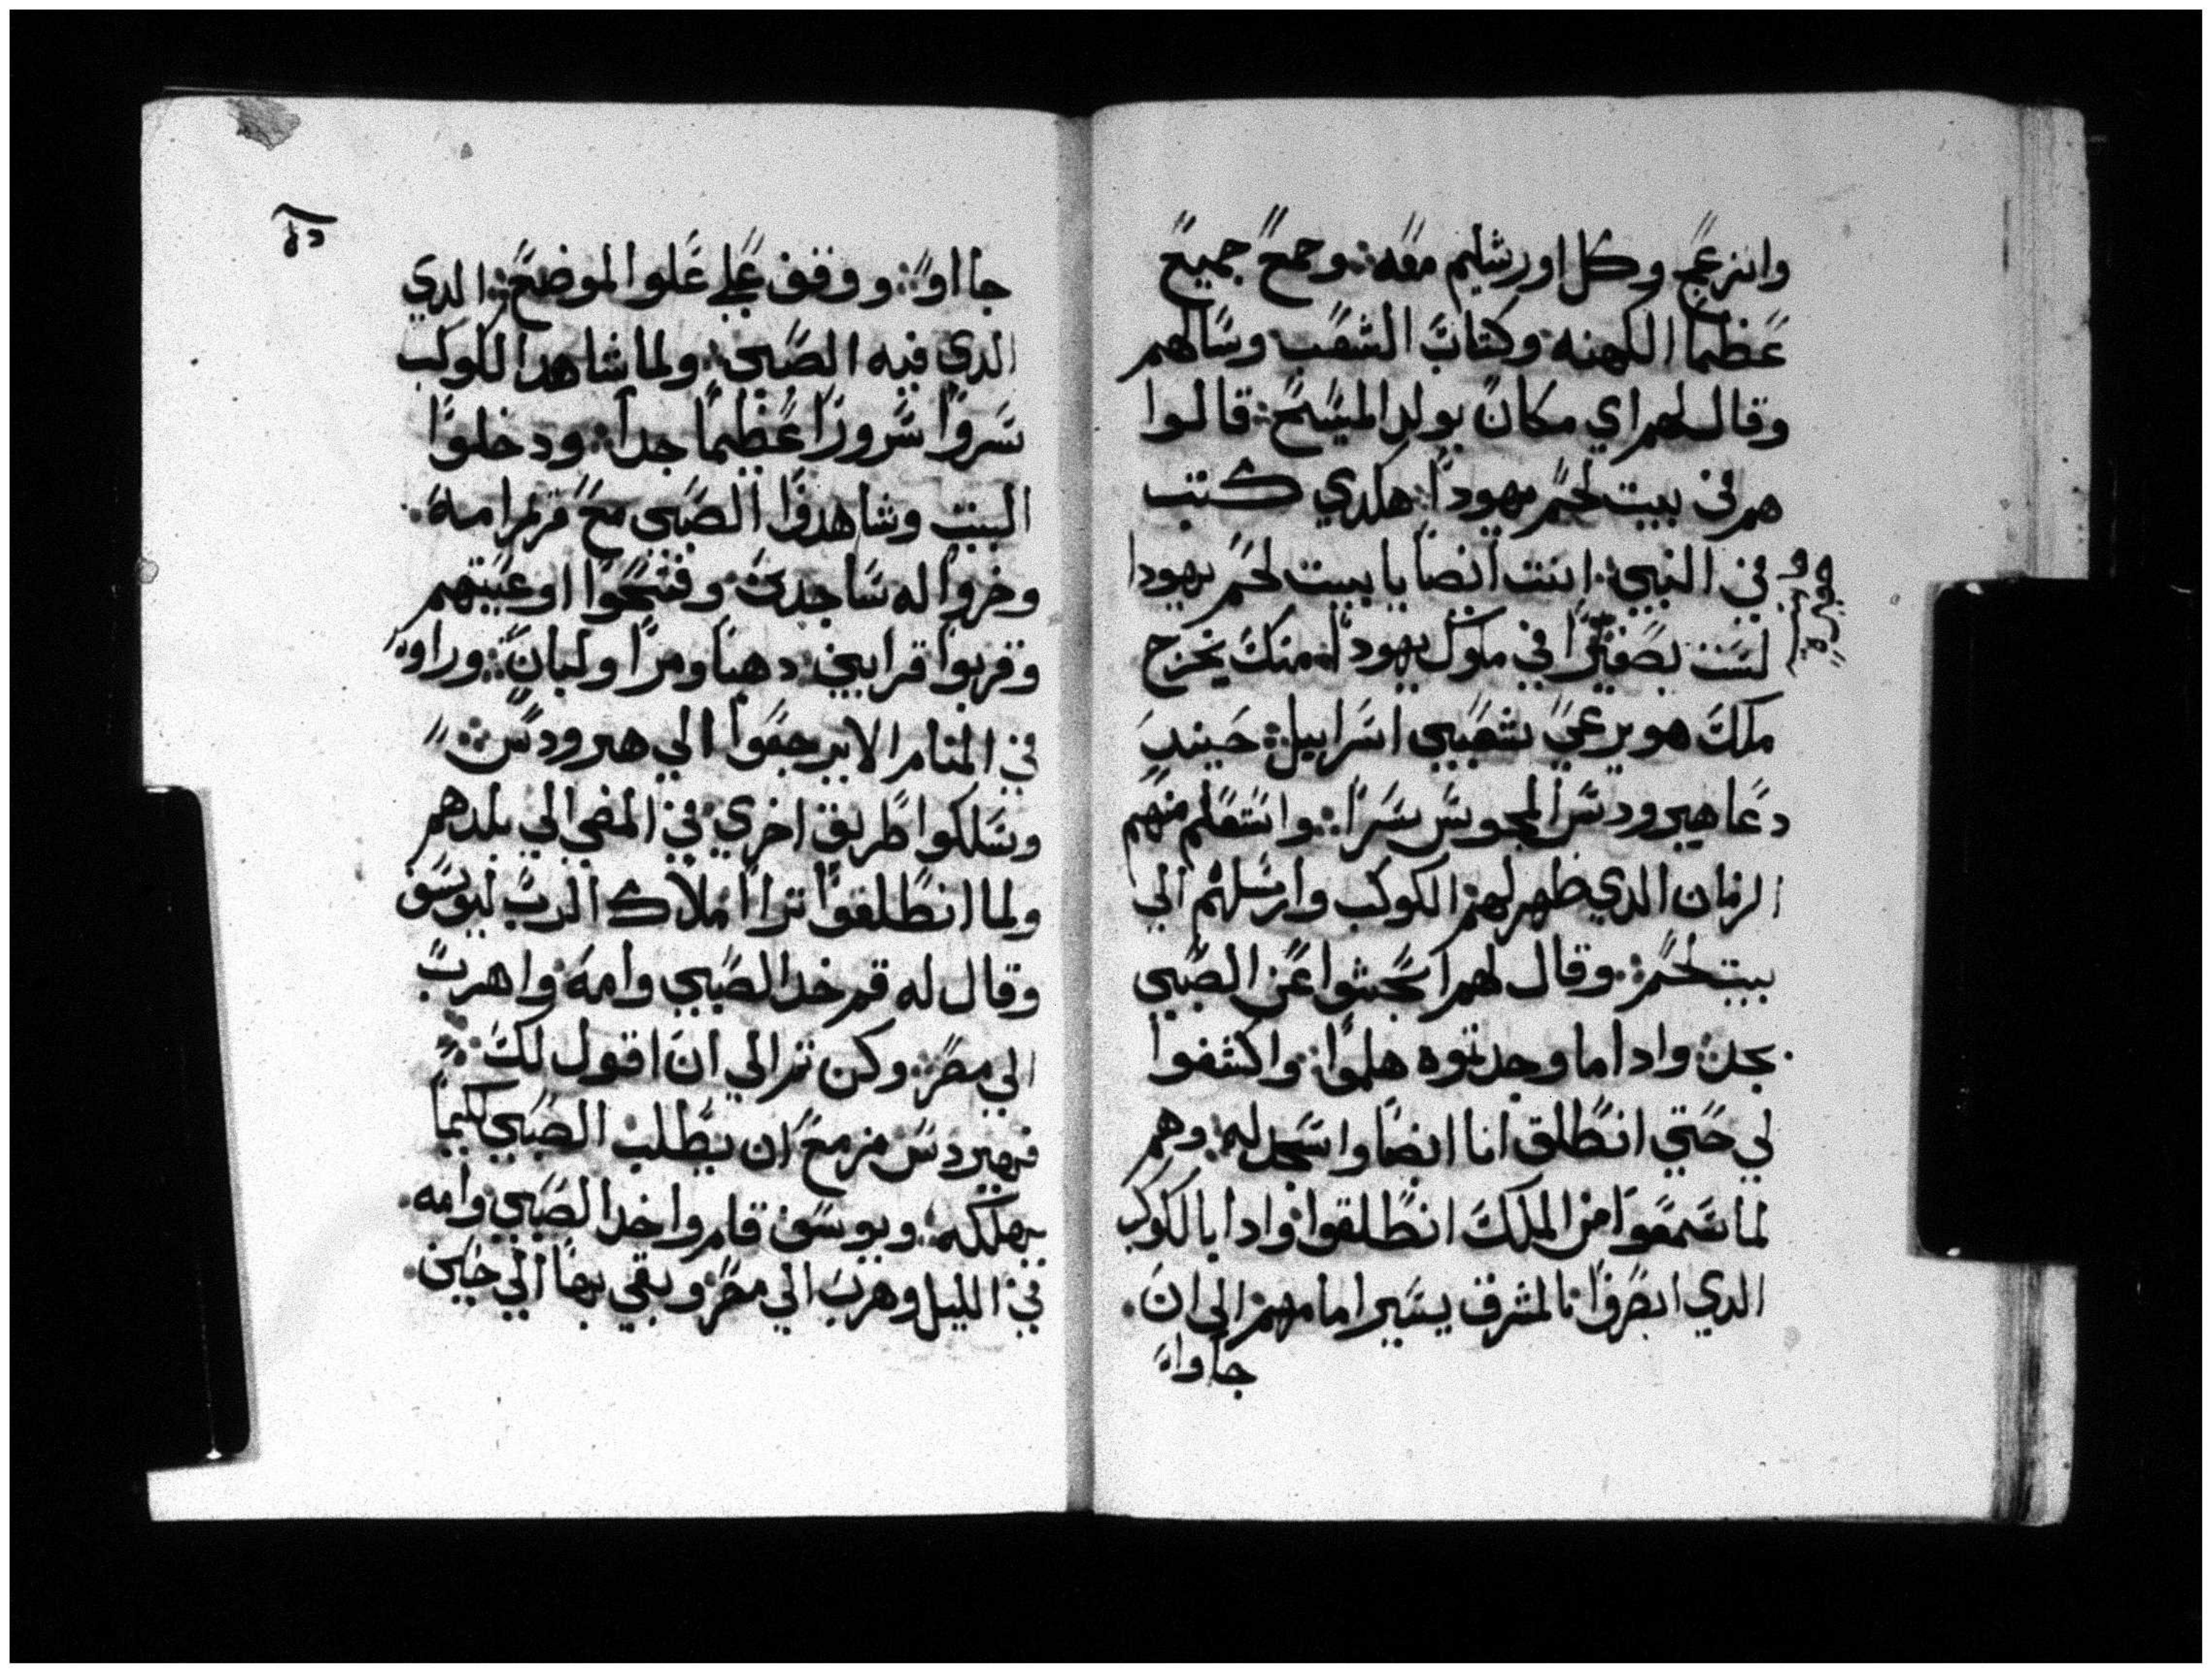 وانزعج وكل اورشليم معه ∴ وجمع جميع
عظما الكهنه وكتاب الشعب وسالهم
وقال لهم اي مكان يولد المسيح ∴ قالوا
هم في بيت لحم يهودا ∴ هكدي كتب
في النبي ∴ انت ايضا يا بيت لحم يهودا
لست بصغيرا في ملوك يهودا ∴ منك يخرج
ملك هو يرعي شعبي اسراييل ∴ حينيد
دعا هيرودس المجوس سرا ∴ واستعلم منهم
الزمان الدي ظهر لهم الكوكب وارسلهم الي
بيت لحم ∴ وقال لهم ابحثوا عن الصبي
بجد ∴ وادا ما وجدتوه هلموا ∴ واكشفوا
لي حتي انطلق انا ايضا واسجد له ∴ وهم
لما سمعوا من الملك انطلقوا ∴ وادا بالكوكب
الدي ابصروا بالمشرق يسير امامهم الي ان
جا واو
جا او ∴ ووقف علي علوا الموضع ∴ الدي
الدي فيه الصبي ∴ ولما شاهدا الكوكب
سروا سرورا عظيما جدا ∴ ودخلوا
البيت وشاهدوا الصبي مع مريم امه
وخروا له ساجدين ∴ وفتحوا اوعيتهم
وقربوا قرابين ∴ دهبا ومرا ولبان ∴ وراوه
في المنام الا يرجعوا الي هيرودس ∴
وسلكوا طريق اخري ∴ في المضي الي بلدهم
ولما انطلقوا ترااا ملاك الرب ليوسف
وقال له قم خد الصبي وامه ∴ واهرب
الي مصر ∴ وكن تم الي ان اقول لك ∴
فهيردس مزمع ان يطلب الصبي لكيما
يهلكه ∴ ويوسف قام واخد الصبي وامه
في الليل وهرب الي مصر ∴ وبقي بها الي حين